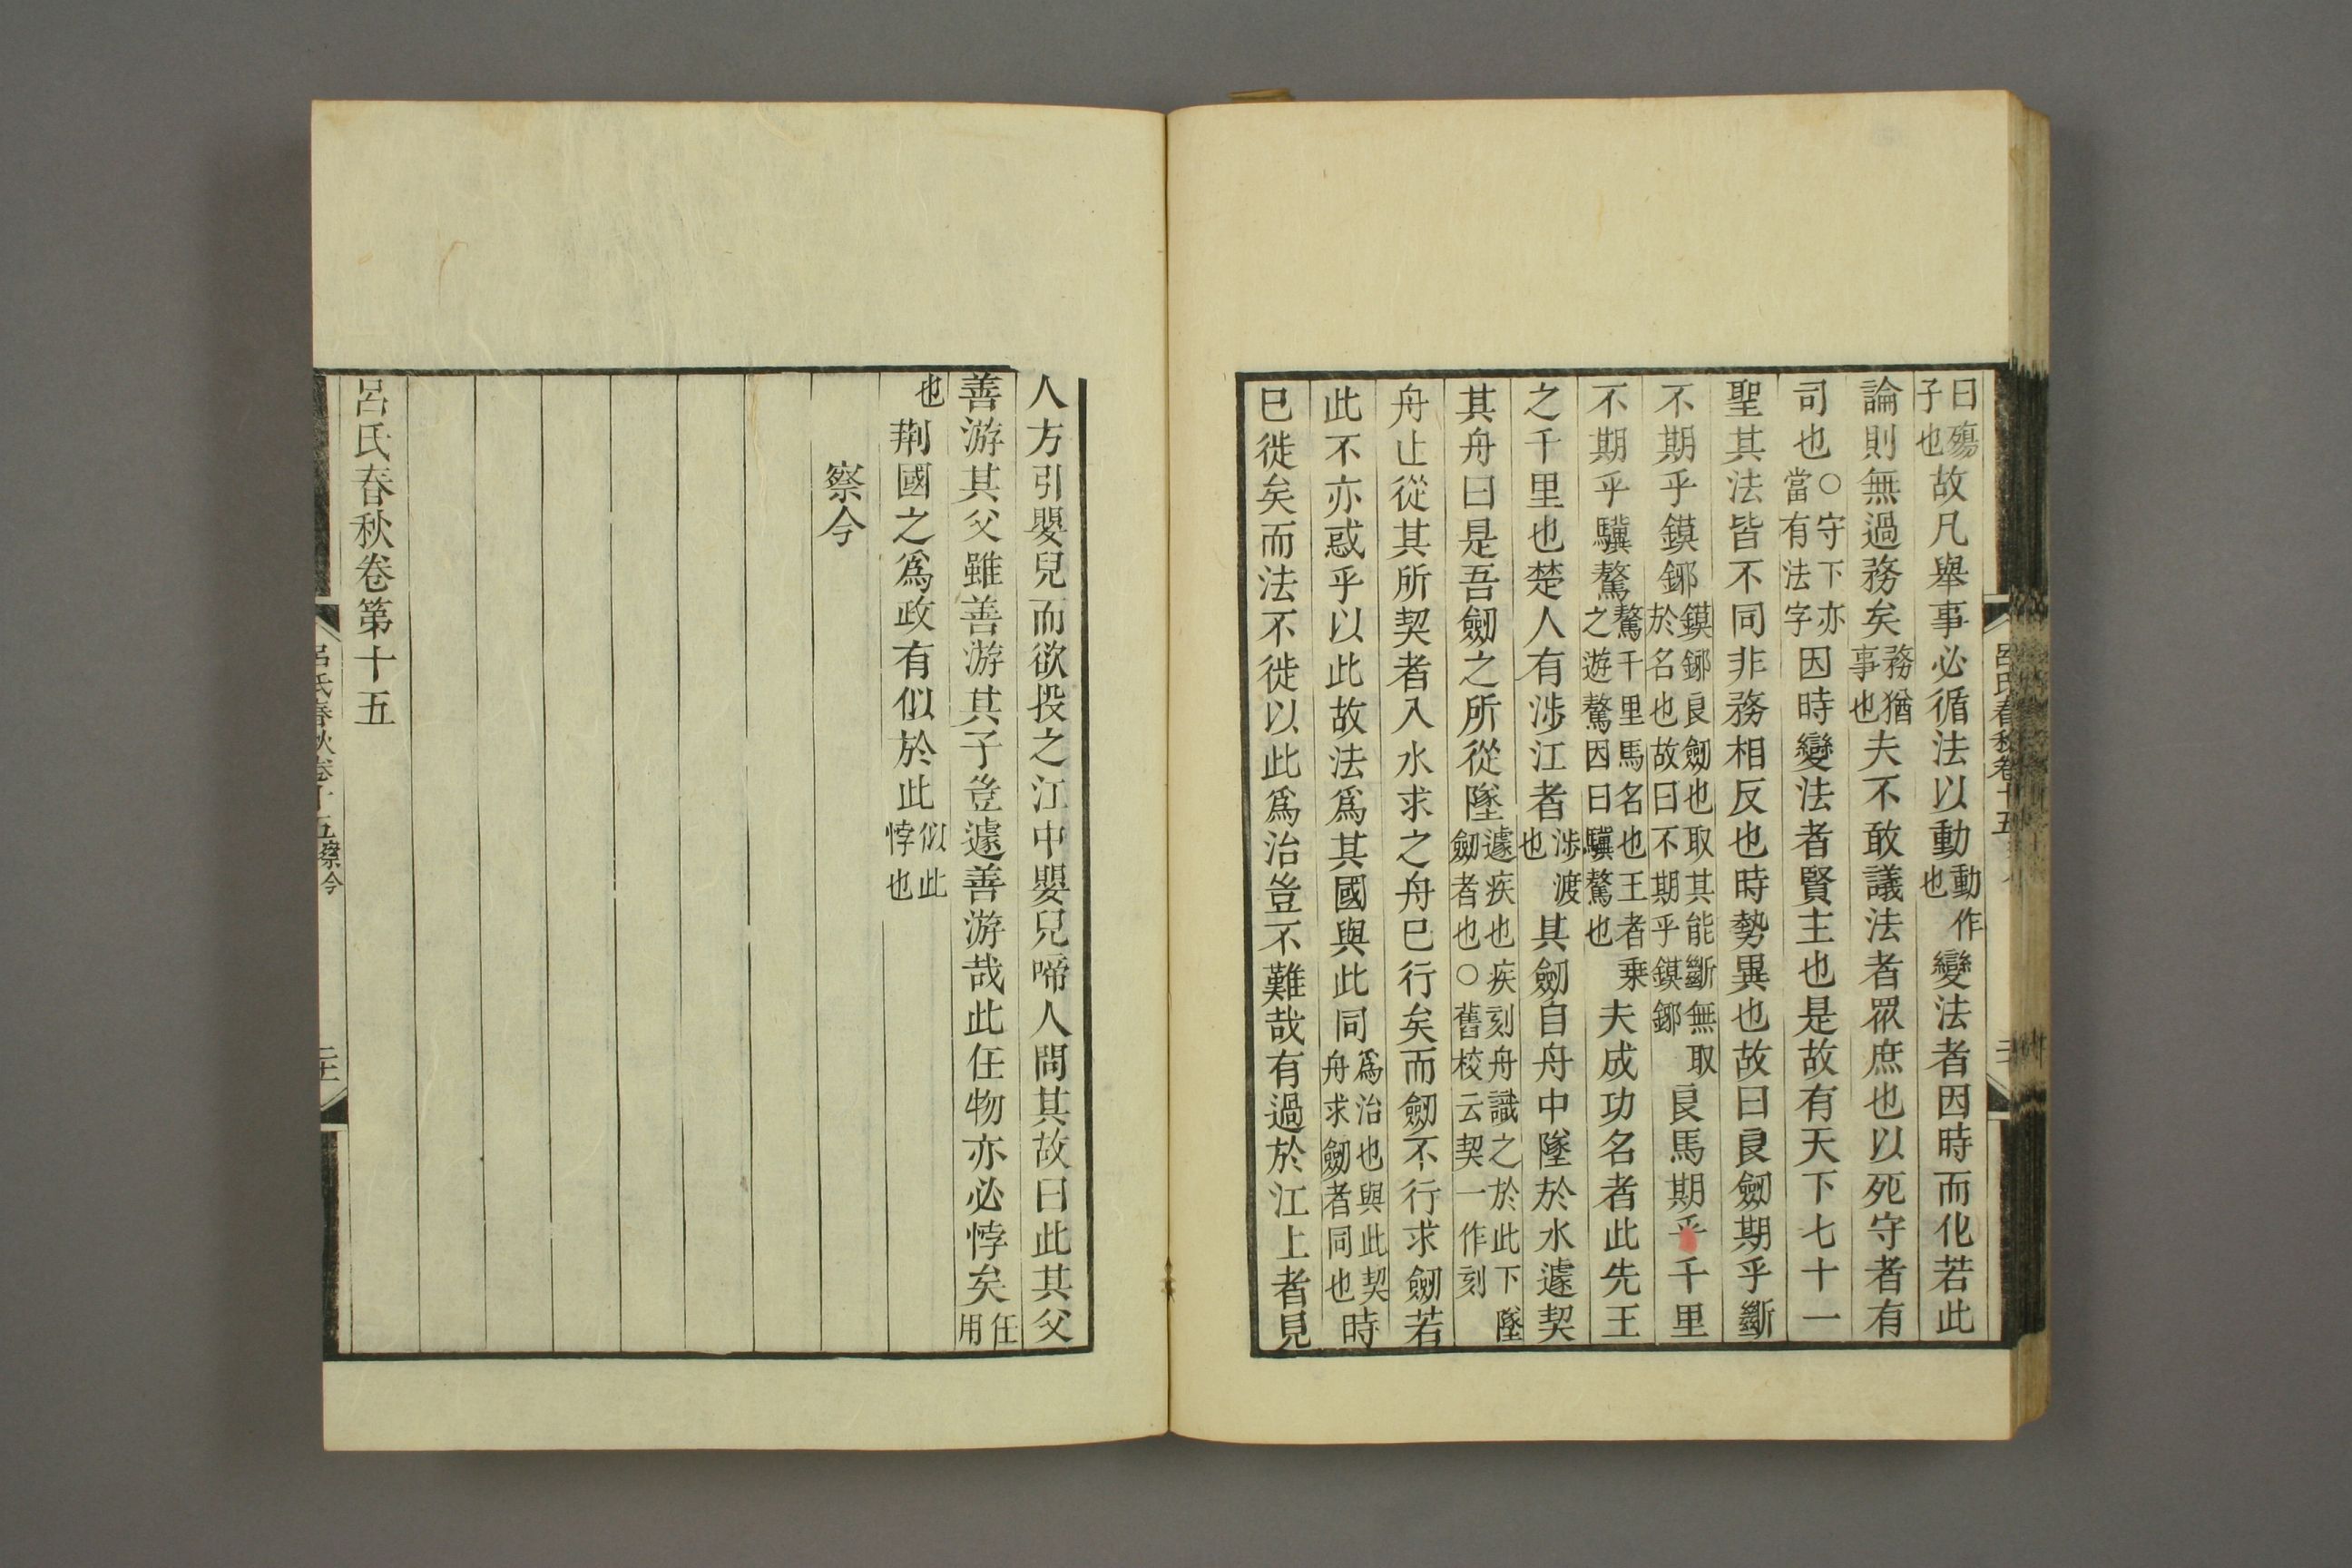 曰殤子也故凡舉事必循法以動動作也變法者因時而化若此
論則無過務矣務猶事也夫不敢議法者眾庶也以死守者有
司也○守下亦當有法字因時變法者賢主也是故有天下七十一
聖其法皆不同非務相反也時勢異也故曰良劒期乎斷
不期乎鏌鋣鏌鋣良劒也取其能斷無取於名也故曰不期乎鏌鋣良馬期乎千里
不期乎驥驁驁千里馬名也王者乗之遊驁因曰驥驁也夫成功名者此先王
之千里也楚人有涉江者涉渡也其劒自舟中墜於水遽契
其舟曰是吾劒之所從墜遽疾也疾刻舟識之於此下墜劒者也○舊校云契一作刻
舟止從其所契者入水求之舟巳行矣而劒不行求劒若
此不亦惑乎以此故法爲其國與此同爲治也與此契舟求劒者同也時
巳徙矣而法不徙以此爲治豈不難哉有過於江上者見
人方引嬰兒而欲投之江中嬰兒啼人問其故曰此其父
善游其父雖善游其子豈遽善游哉此任物亦必悖矣任用
也荆國之爲政有似於此似此悖也
察今
呂氏春秋卷第十五
呂氏春秋卷十五 察今